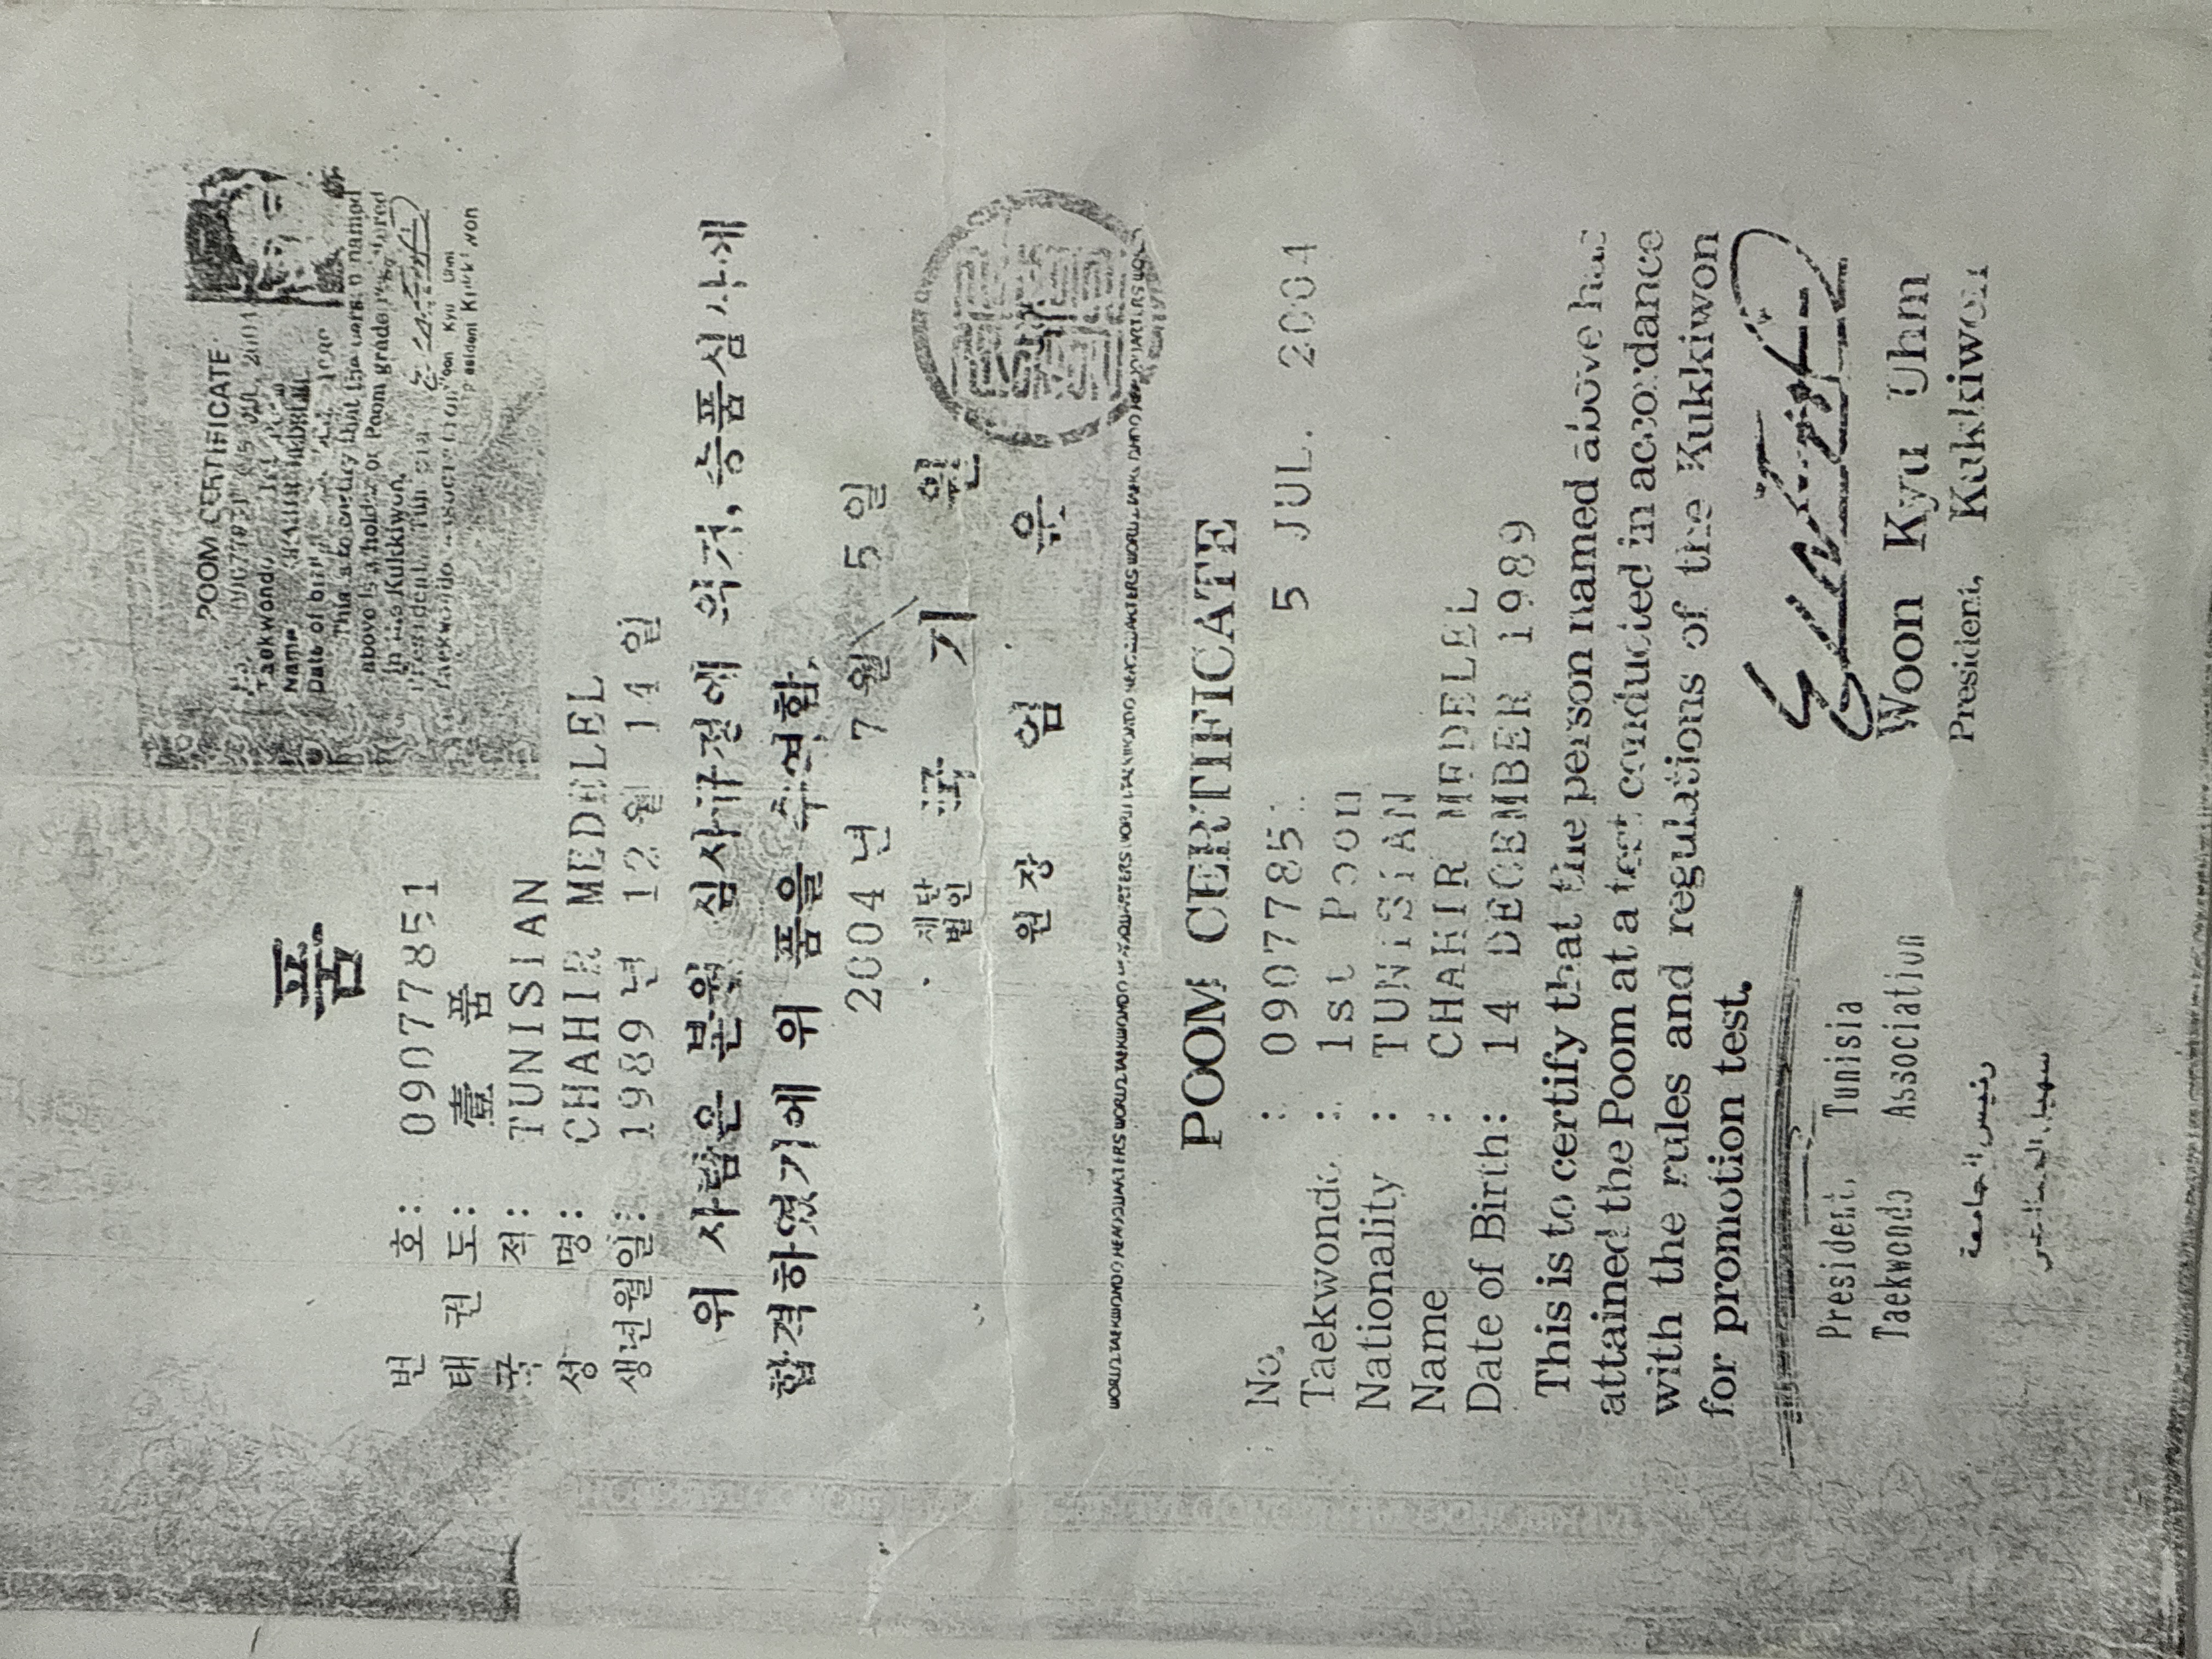 POOM CERTIFICATE
Taekwondo
Name
Date of
This is to certify that the person named
above is a holder of Poom grade
in the Kukkiwon.
Woon Kyu Uhm
품
번 호: 09077851
태 권 도: 壹 품
국 적: TUNISIAN
성 명: CHAHIR MEDELEL
생년월일: 1989년 12월 14일
위 사람은 본원 심사규정에 의거, 승품심사에
합격하였기에 위 품을 수여함.
2004년 7월 5일
재단법인 국 기 원
원장 엄 운 규
POOM CERTIFICATE
No. : 0907785
Taekwondo : 1st Poom
Nationality : TUNISIAN
Name : CHAHIR MEDELEL
Date of Birth: 14 DECEMBER 1989
5 JUL. 2004
This is to certify that the person named above has
attained the Poom at a test conducted in accordance
with the rules and regulations of the Kukkiwon
for promotion test.
Woon Kyu Uhm
President, Kukkiwon
President, Tunisia
Taekwondo Association
رئيس الجامعة